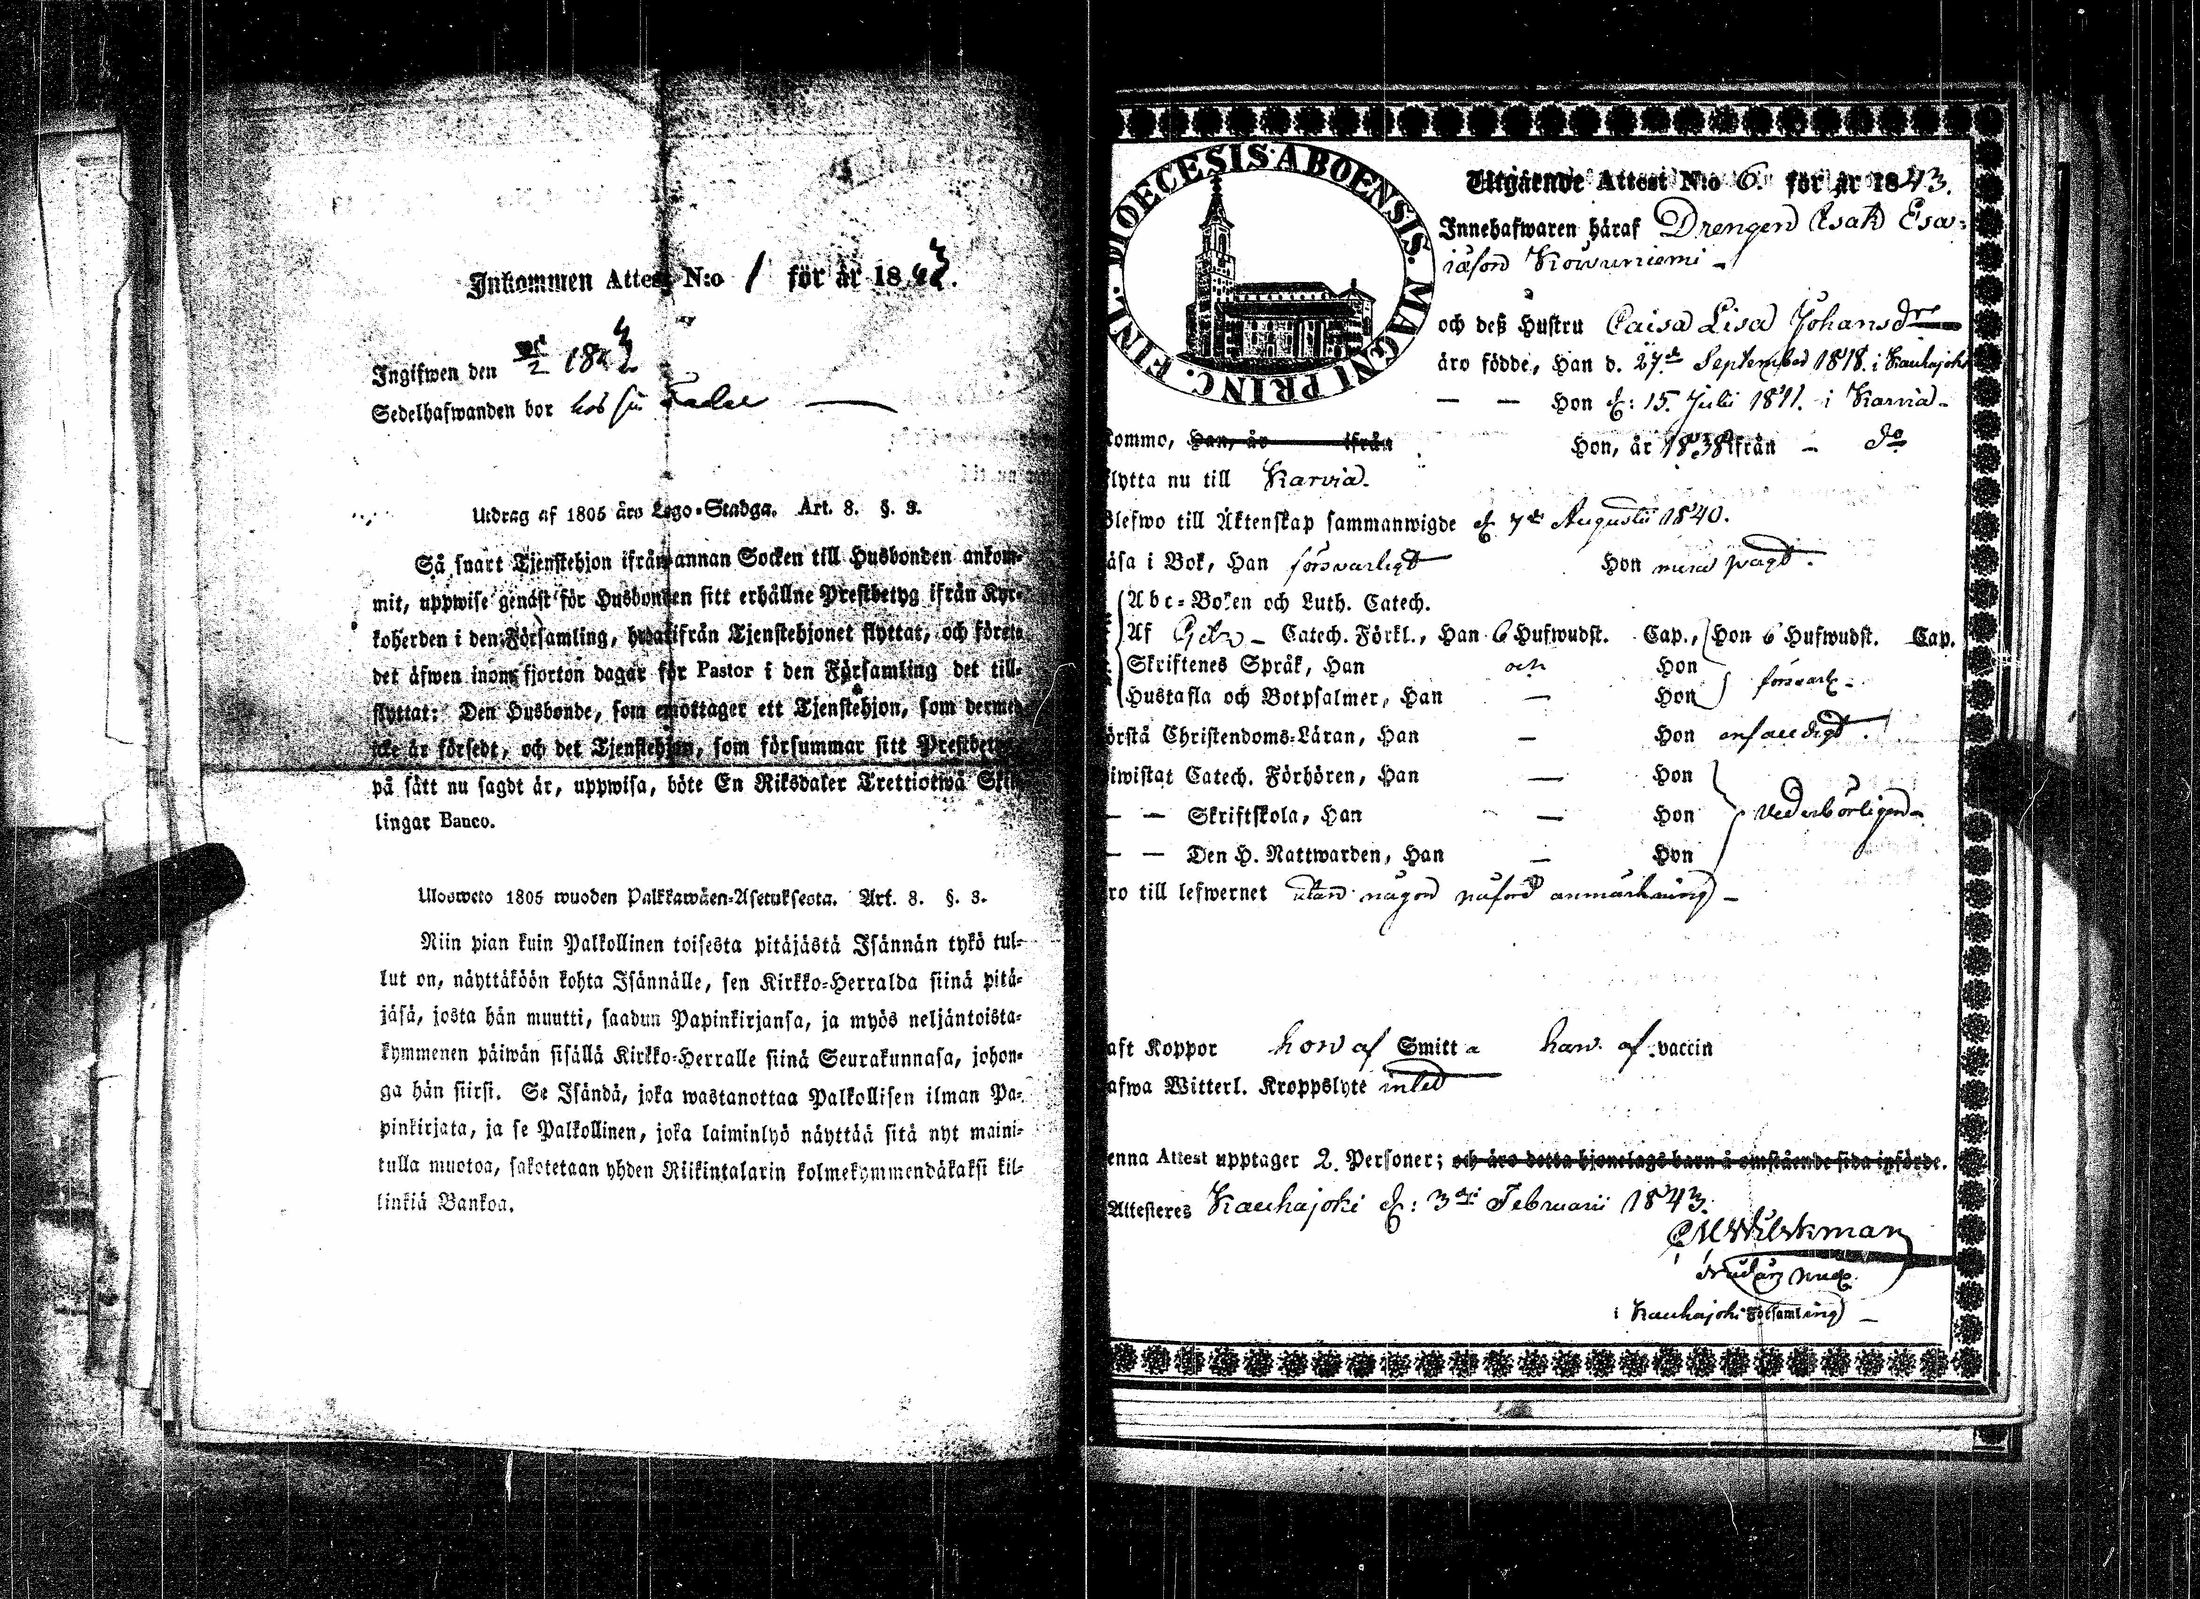 Inkommen Attest N:o 1 för år 1843.
Ingifwen den 1843
Sedelhafwanden bor hos sin Fader
Utdrag af 1805 års Lego-Stadga. Art. 8. §. 3.
Så snart Tjenstehjon ifrån annan Socken till Husbonden ankom-
mit, uppwise genast för Husbonden sitt erhållne Prestbetyg ifrån Kyr-
koherden i den Församling, hwarifrån Tjenstehjonet flyttat, och förete
det äfwen inom fjorton dagar för Pastor i den Församling det till-
flyttat: Den Husbonde, som emottager ett Tjenstehjon, som dermed
icke är försedt, och det Tjenstehjon, som försummar sitt Prestbetyg
på sätt nu sagdt är, uppwisa, böte En Riksdaler Trettiotwå Skil-
lingar Banco.
Ulosweto 1805 wuoden Palkkawäen-Asetuksesta. Art. 8. §. 3.
Niin pian kuin Palkollinen toisesta pitäjästä Isännän tykö tul-
lut on, näyttäköön kohta Isännälle, sen Kirkko-Herralda siinä pitä-
jäsä, josta hän muutti, saadun Papinkirjansa, ja myös neljäntoista-
kymmenen päiwän sisällä Kirkko-Herralle siinä Seurakunnasa, johon-
ga hän siirsi. Se Isändä, joka wastanottaa Palkollisen ilman Pa-
pinkirjata, ja se Palkollinen, joka laiminlyö näyttää sitä nyt maini-
tulla muotoa, sakotetaan yhden Riikintalarin kolmekymmendäkaksi kil-
linkiä Bankoa.
FINL. DIOECESIS ABOENSIS. MAGNI PRINC.
Utgående Attest N:o 6. för år 1843.
Innehafwaren häraf Drengen Isak Esa-
iæson Kowuniemi
och deß Hustru Caisa Lisa Johansdr
äro födde, Han d. 27de September 1818. i Kauhajoki
— — Hon d: 15. Julii 1811. i Karvia
kommo, Han, år ifrån Hon, år 1838 ifrån - do
flytta nu till Karvia.
Blefwo till Äktenskap sammanwigde d. 7de Augustii 1840.
läsa i Bok, Han försvarligt Hon
Abc-Boken och Luth. Catech.
Af Catech. Förkl., Han 6 Hufwudst. Cap., Hon 6 Hufwudst. Cap.
Skriftenes Språk, Han och Hon
Hustafla och Botpsalmer, Han — Hon försvarl.
örstå Christendoms-Läran, Han — Hon enfaldigt.
iwistat Catech. Förhören, Han — Hon
— — Skriftskola, Han — Hon Vederbörligen
— — Den H. Nattwarden, Han — Hon
ro till lefwernet utan någon anmärkning
aft Koppor hon af Smitta han af vaccin
afwa Witterl. Kroppslyte intet
enna Attest upptager 2. Personer; och äro detta hjonelags barn å omstående sida införde.
Attesteres Kauhajoki d: 3die Februarii 1843.
Wilskman
i Kauhajoki Församling